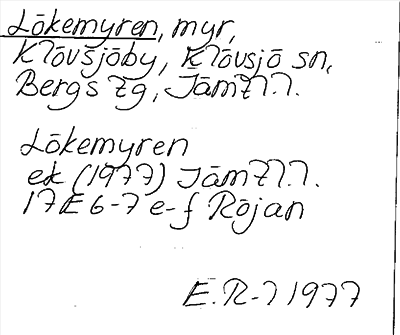 Lökemyren, myr,
Klövsjöby, Klövsjö sn,
Bergs tg, Jämtl.l.
Lökemyren
ek (1977) Jämtl.l.
17E 6-7 e-f Röjan
E.R-l 1977